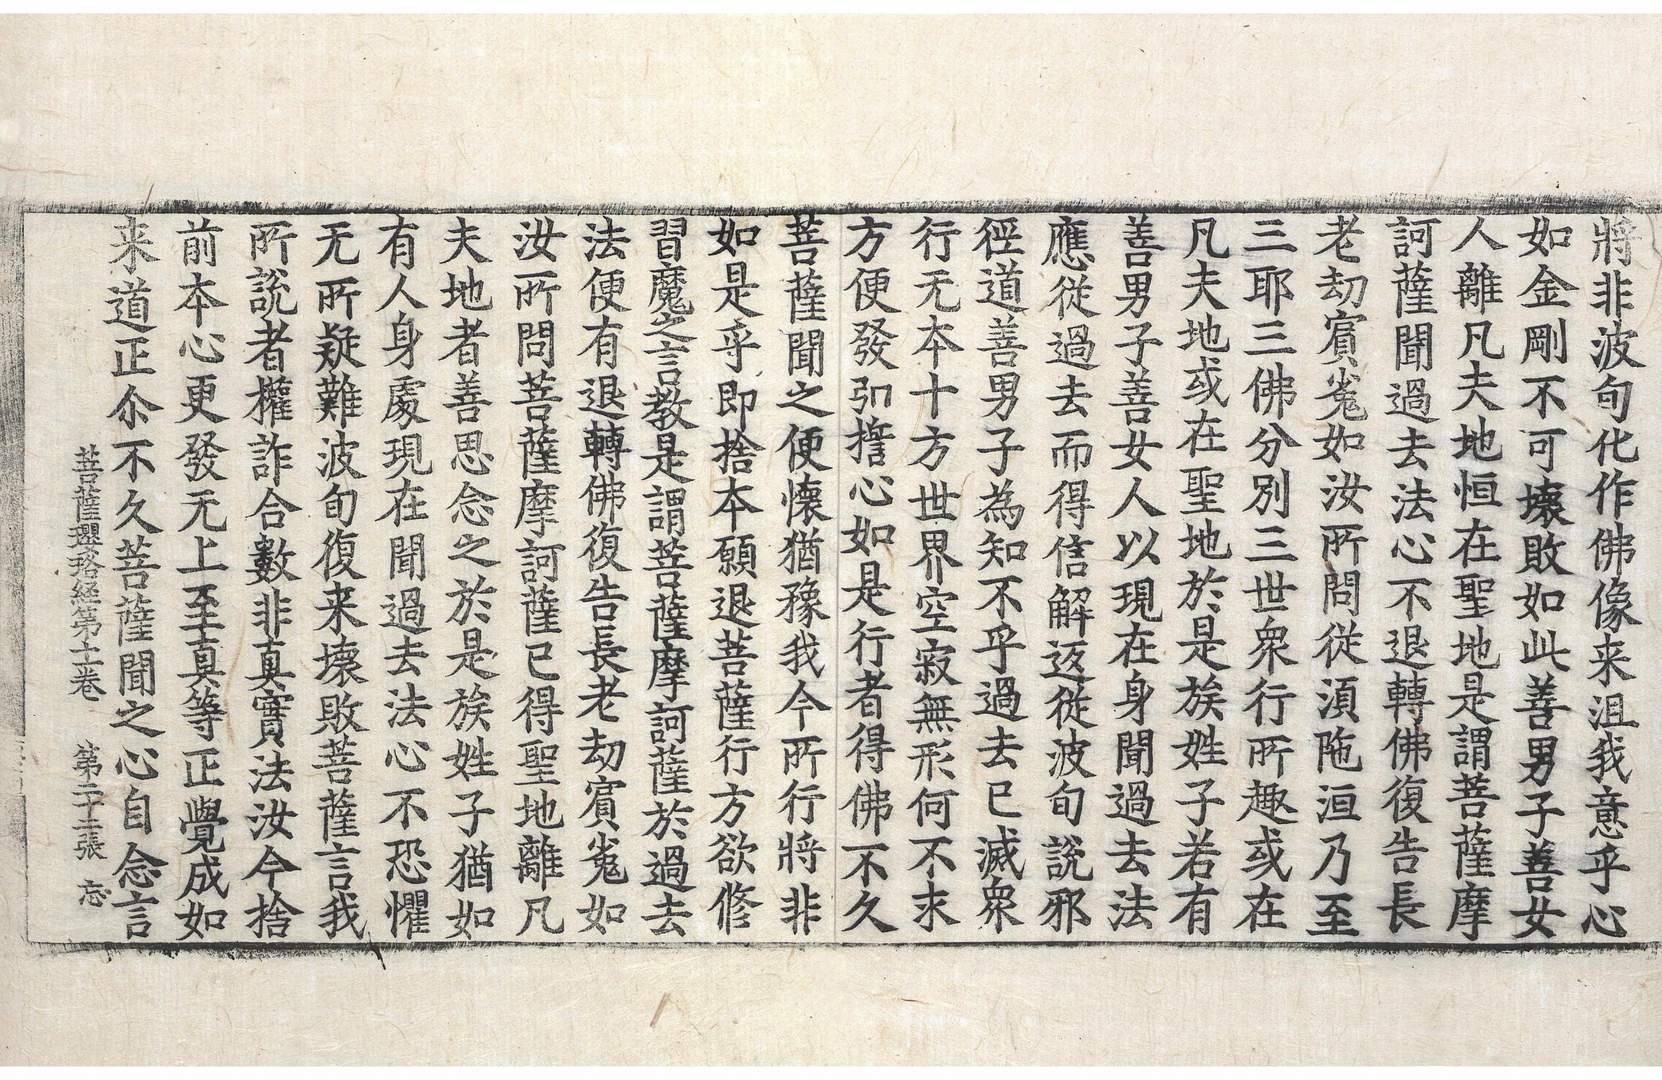 將非波旬化作佛像来沮我意乎心
如金剛不可壞敗如此善男子善女
人離凡夫地恒在聖地是謂菩薩摩
訶薩聞過去法心不退轉佛復告長
老劫賓㝹如汝所問從湏陁洹乃至
三耶三佛分別三世衆行所趣或在
凡夫地或在聖地於是族姓子若有
善男子善女人以現在身聞過去法
應從過去而得信解返從波旬說邪
徑道善男子為知不乎過去已滅衆
行无本十方世界空寂無形何不求
方便發引擔心如是行者得佛不久
菩薩聞之便懷猶豫我今所行將非
如是乎即捨本願退菩薩行方欲修
習魔之言教是謂菩薩摩訶薩於過去
法便有退轉佛復告長老劫賓㝹如
汝所問菩薩摩訶薩已得聖地離凡
夫地者善思念之於是族姓子猶如
有人身處現在聞過去法心不恐懼
无所疑難波旬復来壞敗菩薩言我
所說者權詐合數非真實法汝今捨
前本心更發无上至真等正覺成如
来道正尒不久菩薩聞之心自念言
菩薩瓔珞経第十卷 第二十二張 忘